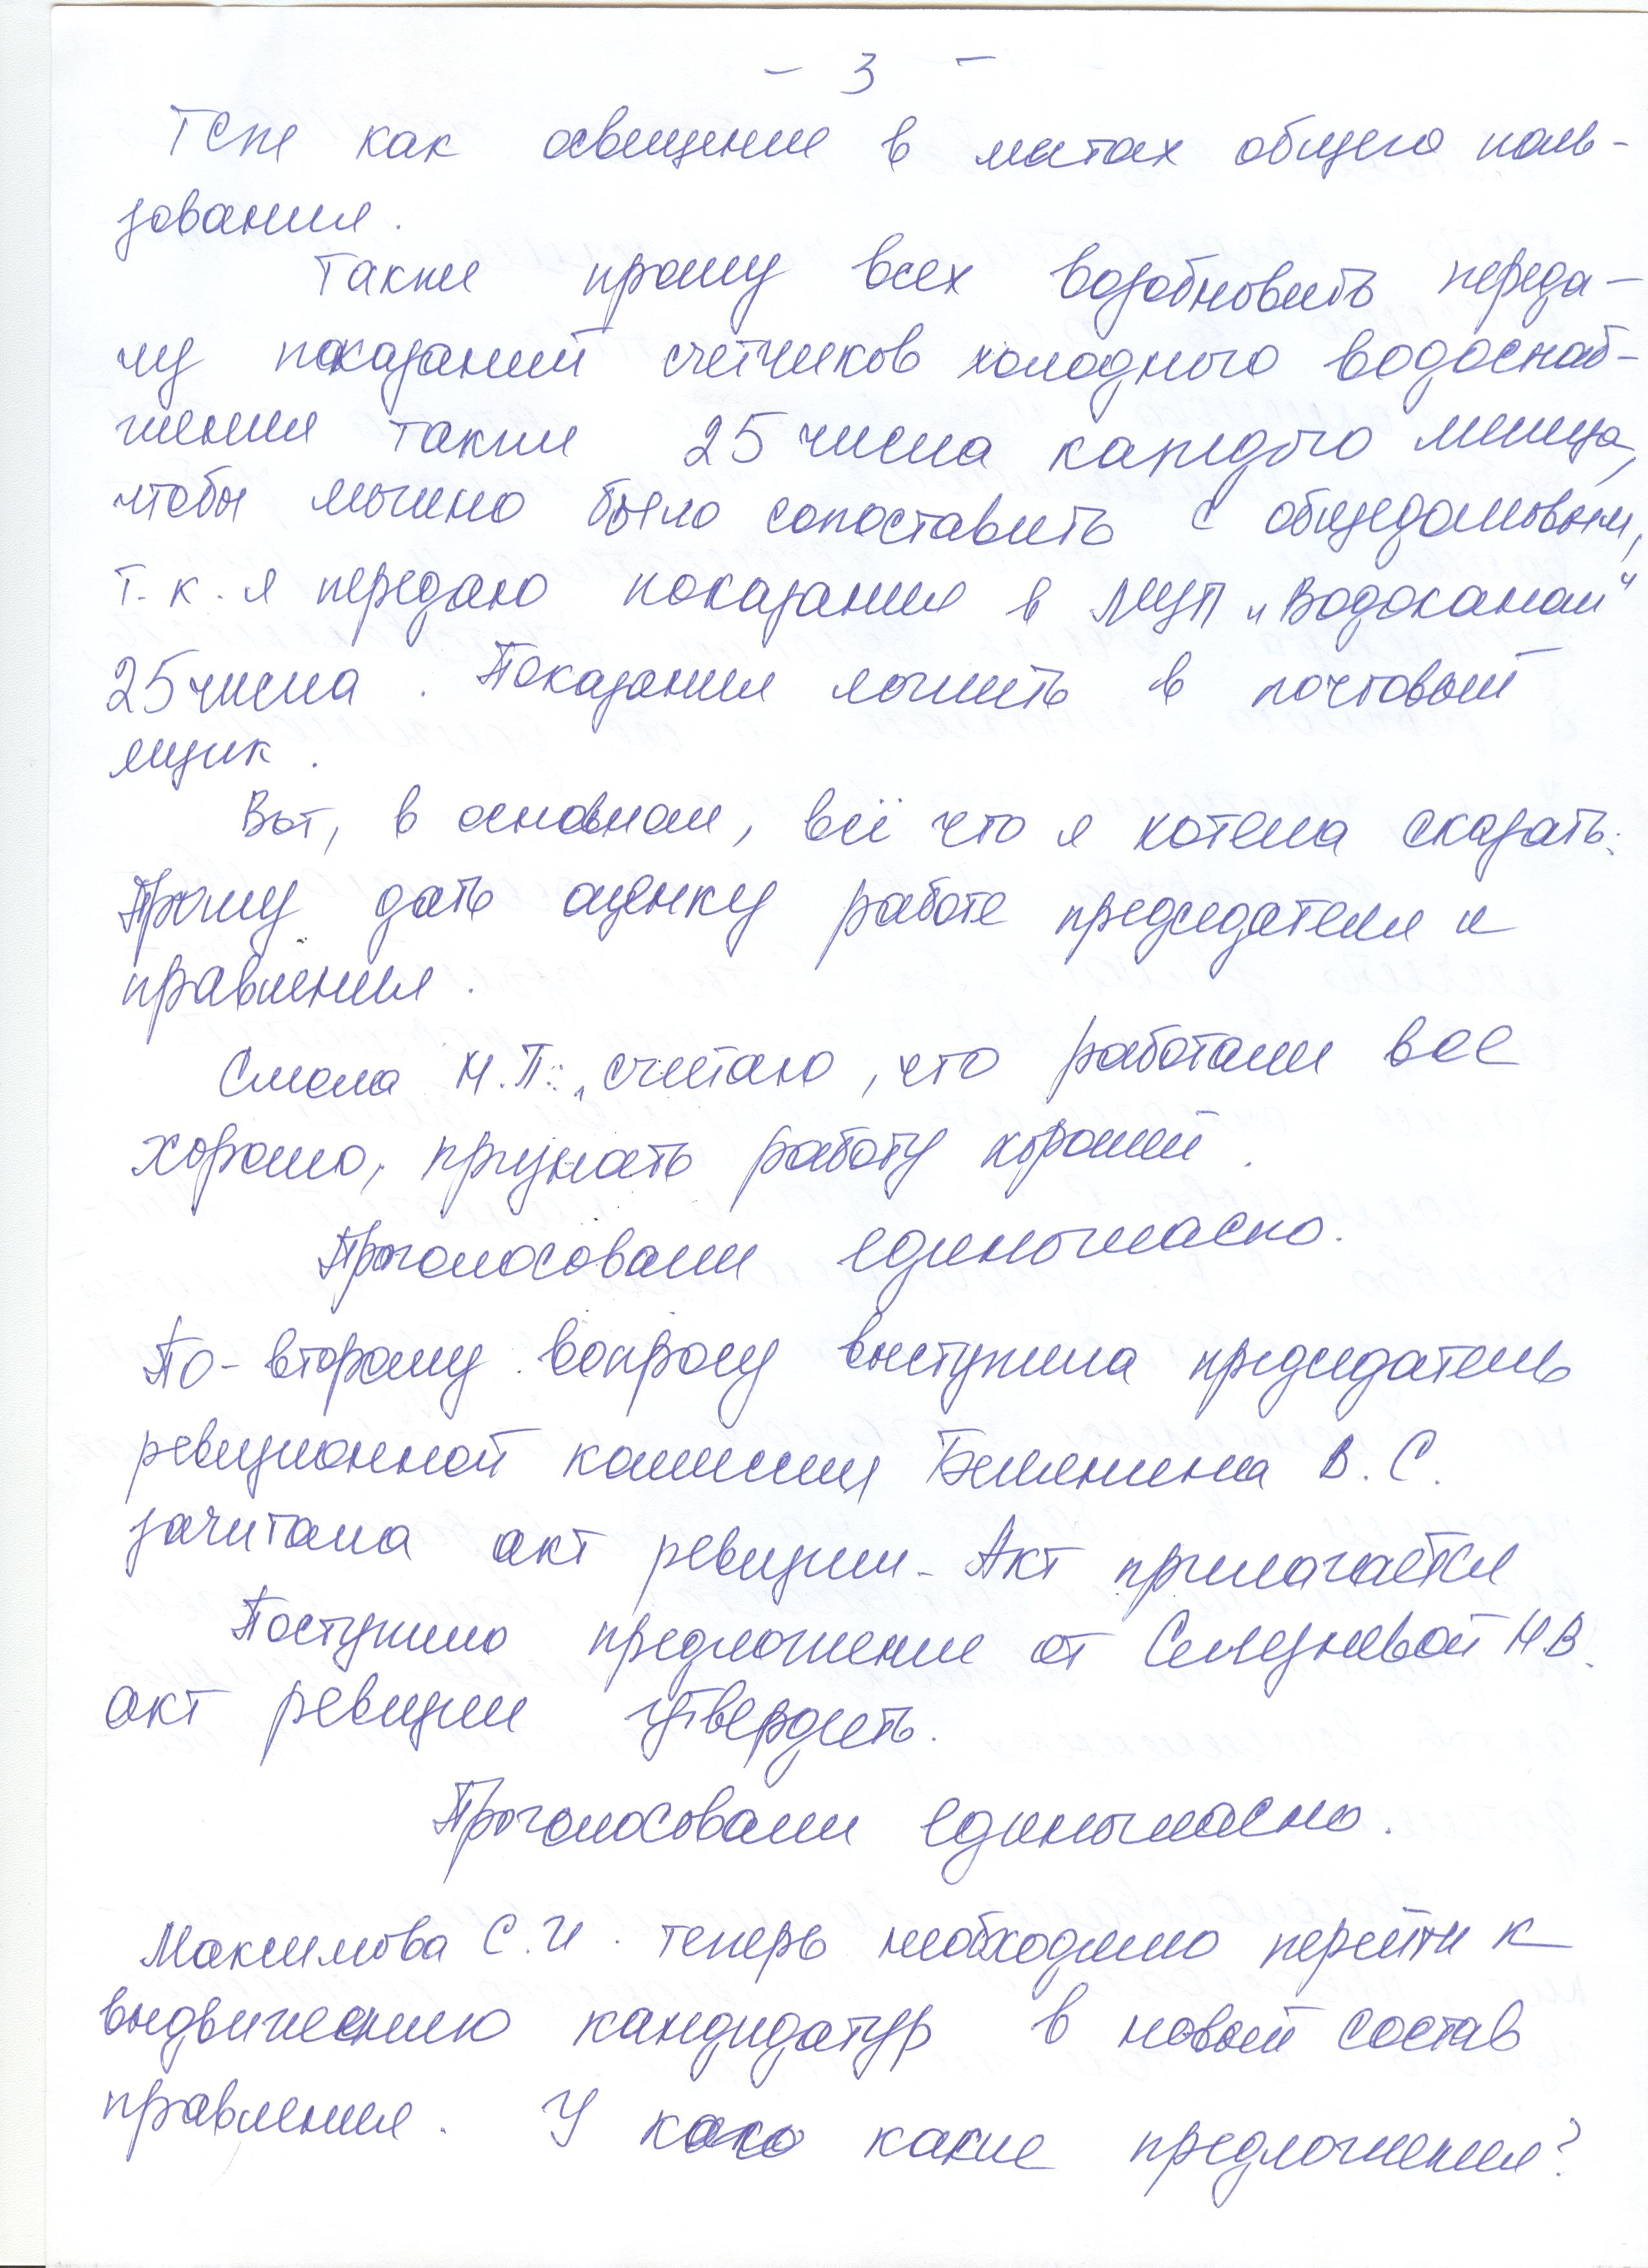 - 3 -
ТСЖ как освещение в местах общего поль-
зования.
Также прошу всех возобновить переда-
чу показаний счетчиков холодного водоснаб-
жения также 25 числа каждого месяца,
чтобы можно было сопоставить с общедомовым,
т.к. я передаю показания в МУП "Водоканал"
25 числа. Показания ложить в почтовый
ящик.
Вот, в основном, всё что я хотела сказать.
Прошу дать оценку работе председателя и
правления.
Смола Н.П.: считаю, что работали все
хорошо, признать работу хорошей.
Проголосовали единогласно.
По-второму вопросу выступила председатель
ревизионной комиссии В.С.
зачитала акт ревизии. Акт прилагается
Поступило предложение от Селезневой Н.В.
акт ревизии утвердить.
Проголосовали единогласно.
Максимова С.И. теперь необходимо перейти к
выдвижению кандидатур в новый состав
правления. У кого какие предложения?